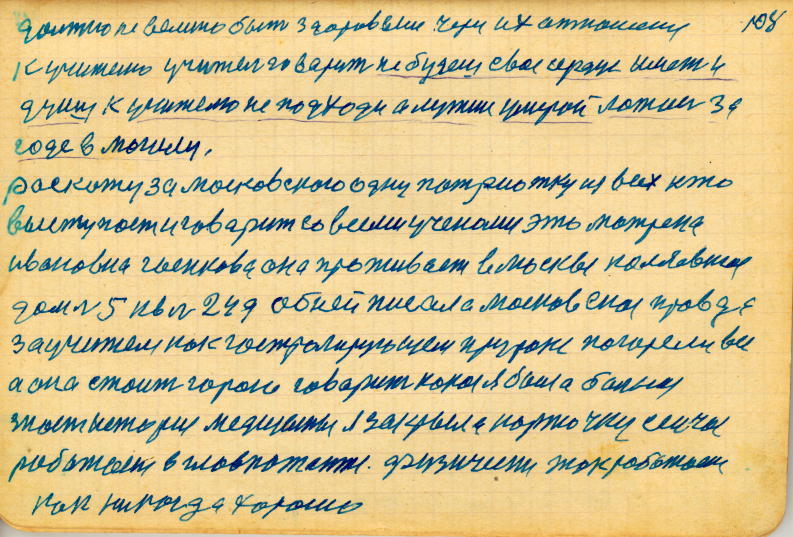 108
должно не велико быть здоровым через их отношения
к учителю учител говарит не будеш свое сердце имет и
душу к учителю не подходи а лучше умерой ложис за
годе в могилу.
роскожу за московского одну потриотку из всех кто
выступоет и говарит со всеми учеными это мотрена
ивановна госнкова она проживает в москве колявское
дом № 5 кв № 249 об ней писала московское провда
за учителем как гостролирующем призроке погорели все
а она стоит говарит какоя я была больноя
знает история медицины я закрыла корточку сейчас
роботоет в главпотенте. физически так роботает
как никогда хорошо